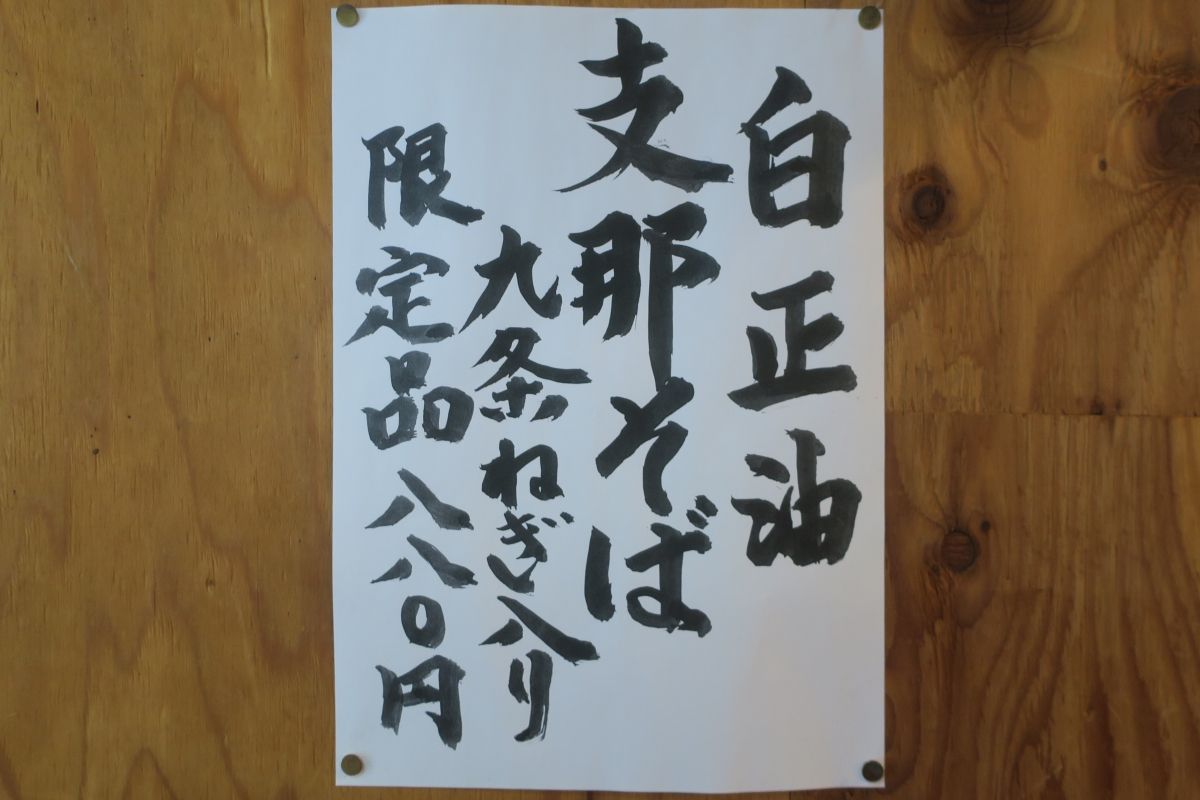 白正油
支那そば
九条ねぎ入り
限定品八八〇円